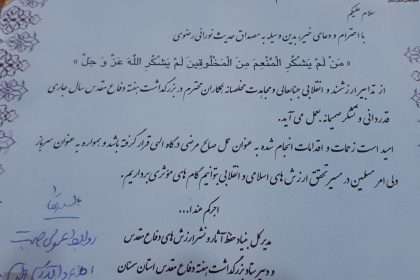 سلام علیکم
با احترام و دعای خیر؛ بدین وسیله به مصداق حدیث نورانی رضوی
« مَنْ لَمْ یَشْکُرِ الْمُنْعِمَ مِنَ الْمَخْلُوقینَ لَمْ یَشْکُرِ اللّهَ عَزَّ وَ جَلَّ »
از تدابیر ارزشمند و انقلابی جنابعالی و مجاهدت مخلصانه همکاران محترم در بزرگداشت هفته دفاع مقدس سال جاری
قدردانی و تشکر صمیمانه به عمل می آید.
امید است زحمات و اقدامات انجام شده به عنوان عمل صالح مرضی درگاه الهی قرار گرفته باشد و همواره به عنوان سرباز
ولی امر مسلمین در مسیر تحقق ارزش های اسلامی و انقلابی بتوانیم گام های مؤثری برداریم.
اجرکم عندا...
مدیر کل بنیاد حفظ آثار و نشر ارزش های دفاع مقدس
و دبیر ستاد بزرگداشت هفته دفاع مقدس استان سمنان
روابط عمومی